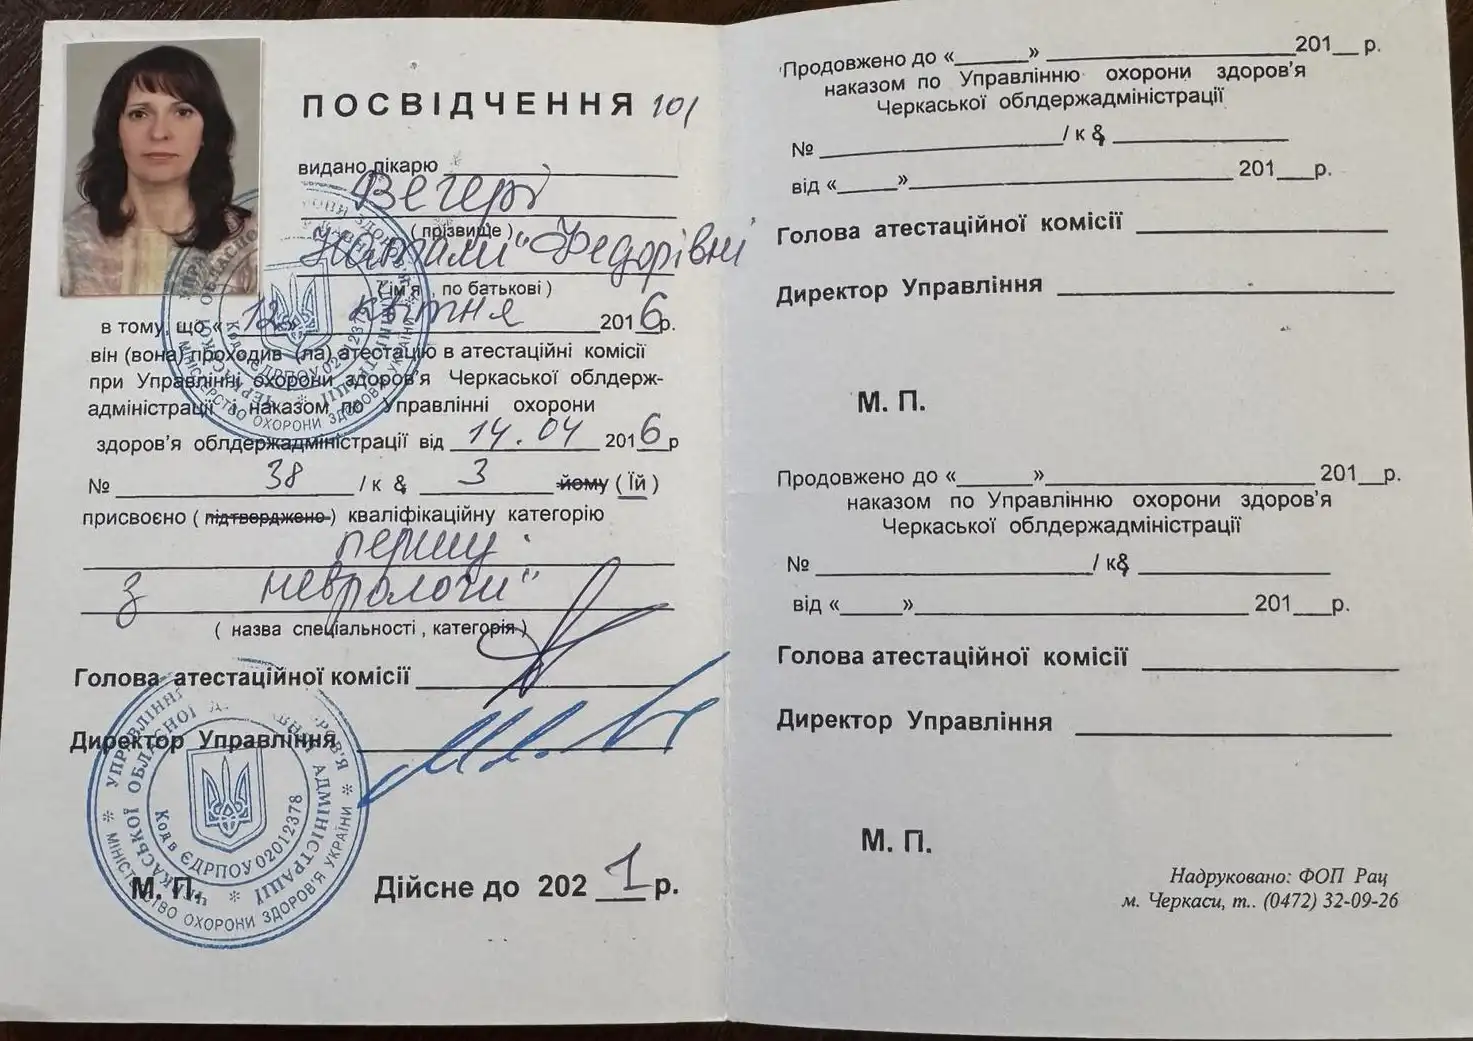 ПОСВІДЧЕННЯ 101
видано лікарю
Вегері
( прізвище )
Наталії Федорівні
( ім'я , по батькові )
в тому, що « 12 » квітня 2016р.
він (вона) проходив (ла) атестацію в атестаційні комісії
при Управлінні охорони здоров'я Черкаської облдерж-
адміністрації і наказом по Управлінні охорони
здоров'я облдержадміністрації від 14.04 2016 р
№ 38 / к & 3 йому ( їй )
присвоєно ( підтверджено ) кваліфікаційну категорію
першу
з неврології
( назва спеціальності , категорія )
Голова атестаційної комісії
Директор Управління
М. П.
Дійсне до 2021 р.
УПРАВЛІННЯ ОХОРОНИ ЗДОРОВ'Я
ЧЕРКАСЬКОЇ ОБЛАСНОЇ ДЕРЖАВНОЇ АДМІНІСТРАЦІЇ
МІНІСТЕРСТВО ОХОРОНИ ЗДОРОВ'Я УКРАЇНИ
Код в ЄДРПОУ 02012378
Продовжено до «_____» _____ 201__ р.
наказом по Управлінню охорони здоров'я
Черкаської облдержадміністрації
№ _____ / к & _____
від «_____» _____ 201___р.
Голова атестаційної комісії _____
Директор Управління _____
М. П.
Продовжено до «_____» _____ 201__р.
наказом по Управлінню охорони здоров'я
Черкаської облдержадміністрації
№ _____ / к& _____
від «_____» _____ 201___р.
Голова атестаційної комісії _____
Директор Управління _____
М. П.
Надруковано: ФОП Рац
м. Черкаси, т.. (0472) 32-09-26